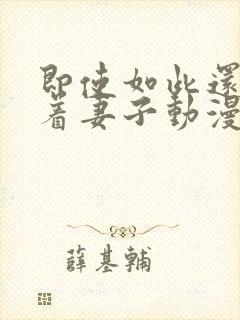 即使如此還
着妻子動漫
薛基輔